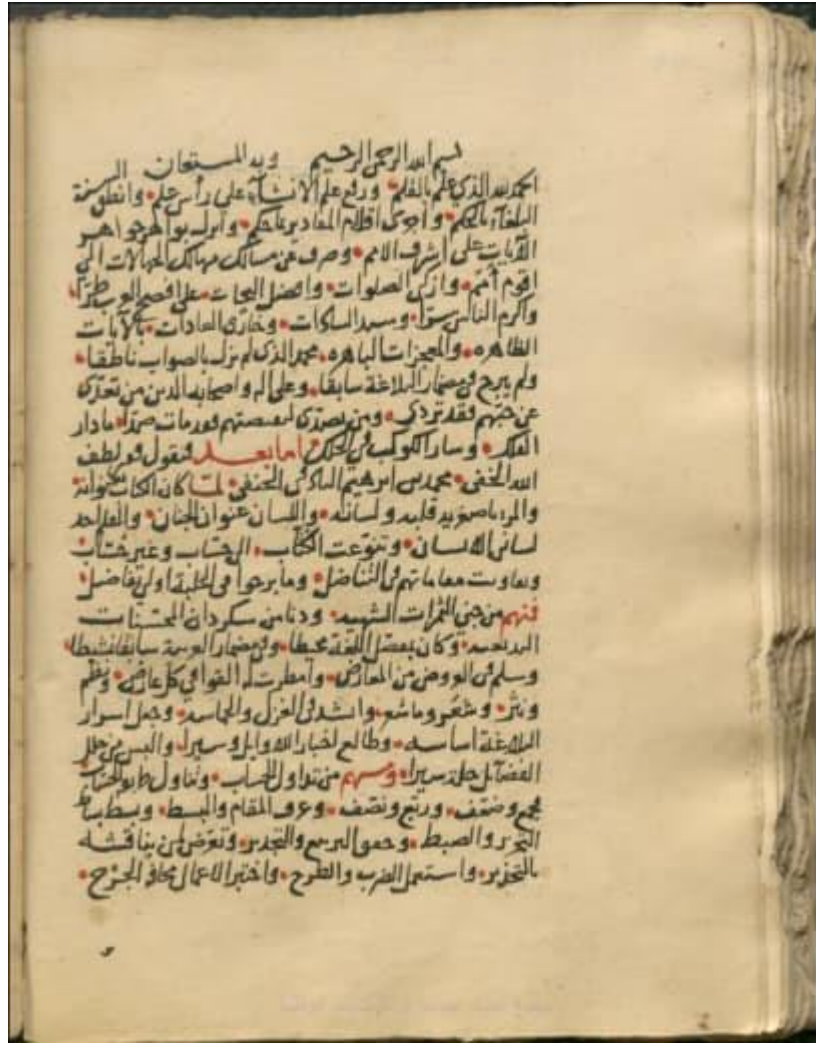 بسم الله الرحمن الرحيم وبه المستعان
الحمد لله الذي علم بالقلم ورفع علم الانشاء على رأس علم وانطق السنة
البلغاء بالحكم واجرى اقلام المقادير بما حكم وابرز بواهر جواهر
الآيات على اشرف الامم وصرف عن مسالك مهالك الجهالات الى
اقوم أمم وازكى الصلوات وافضل التحيات على افصح العرب طرا
واكرم الناس وسيد السادات وخارق العادات بالآيات
الظاهره والمعجزات الباهره محمد الذي لم يزل بالصواب ناطقا
ولم يبرح في مضمار البلاغة سابقا وعلى اله واصحابه الذين من تعدى
عن حبهم فقد تردى ومن تصدى لبغضهم فقد مات صدا ما دار
الفلك وسار الكوكب في الحلك اما بعد فيقول فقير لطف
الله الخفي محمد بن ابرهيم الحنفي لما كان
والمرء باصغريه قلبه ولسانه واللسان عنوان الجنان والقلم احد
لساني الانسان وتنوعت الكتاب الى حساب وغير حساب
وتفاوت مقاماتهم في التناضل وما برحوا في الحلبة اولي تفاضل
فمنهم من جنى الثمرات الشهيه ودنا من سكردان المحسنات
البديعيه وكان بفضل اللغة محيطا وفي مضمار العربية سابقا نشيطا
وسلم في العروض من المعارض وامطرت له القوافي كل عارض ونظم
ونثر وشعر وما شعر وانشد في الغزل والحماسه وجعل اسرار
البلاغة اساسه وطالع اخبار الاوايل وسيرا والبس من حلل
الفضآئل حلة سيرا ومنهم من تداول الحساب وتناول
جمع وضعف وربع ونصف وعرف المقام والبسط وبسط بساط
التحرير والضبط وحقق التربيع والتجدير وتعرض لمن يناقشه
بالتحذير واستعمل الضرب والطرح واختبر الاعمال مخافة الجرح